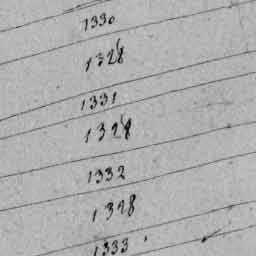 1330
1328
1331
1328
1332
1328
1333